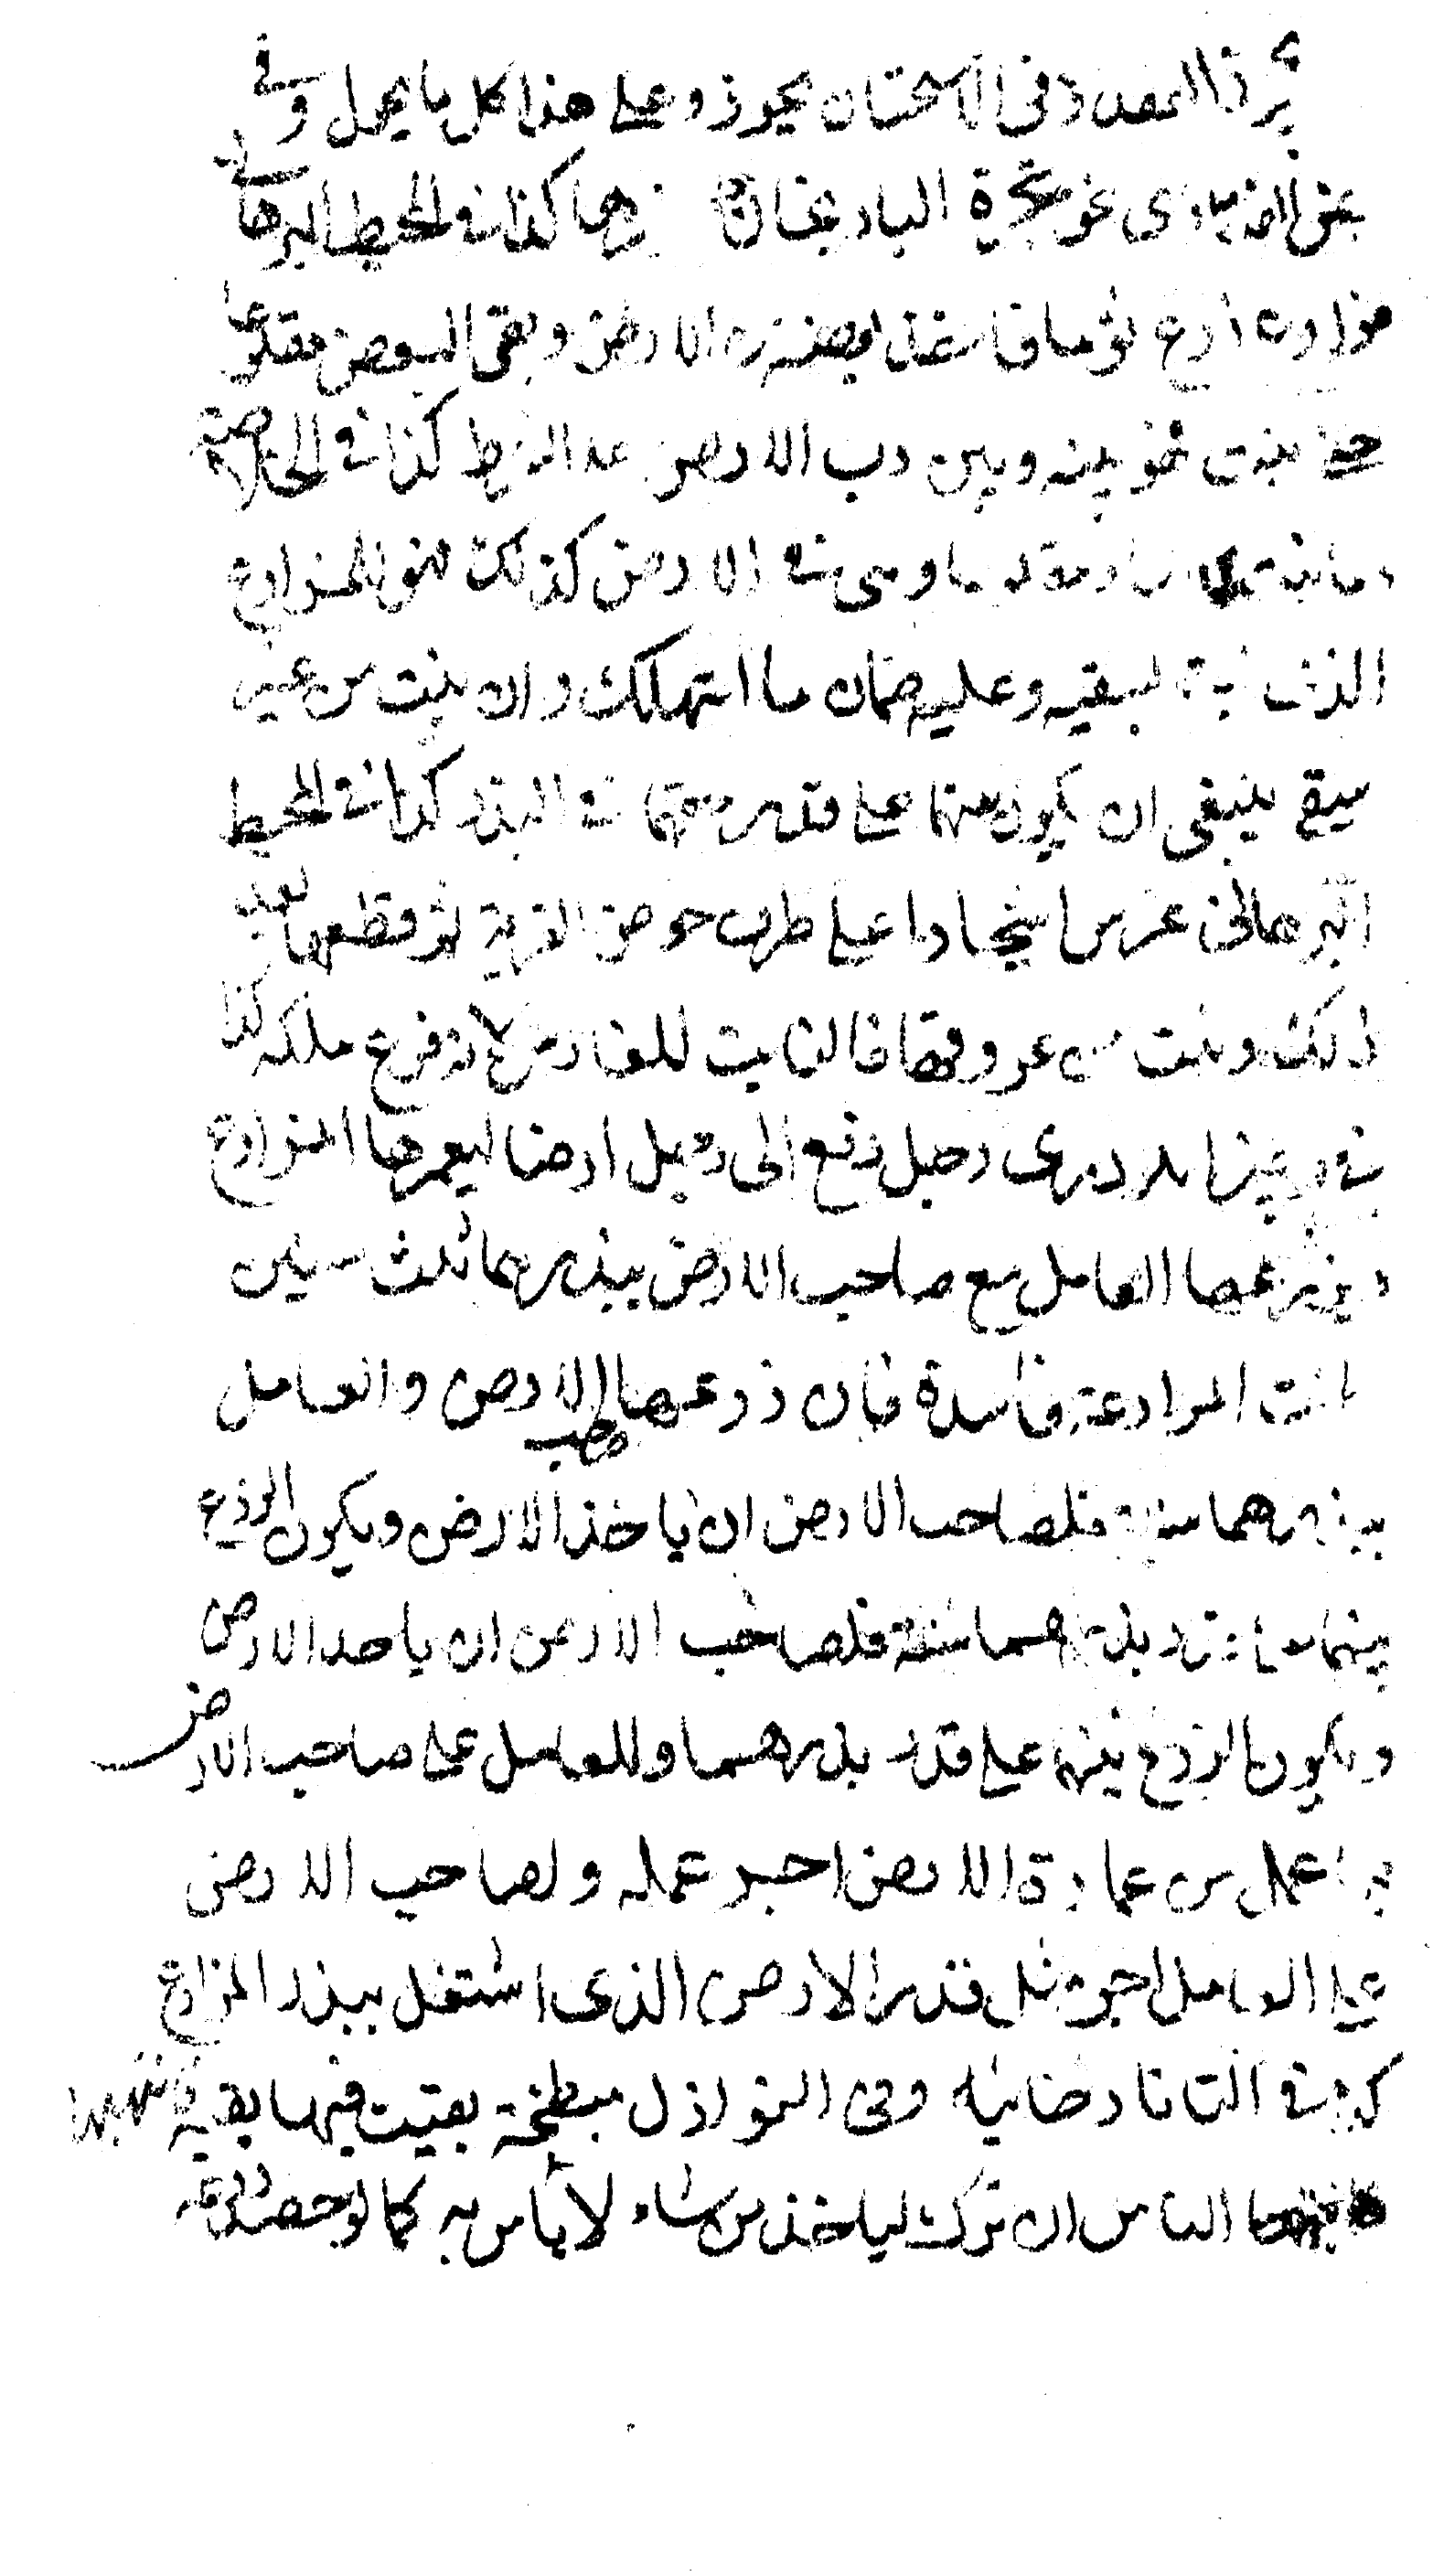 في القياس وفي الاستحسان يجوز وعلى هذا كل ما يحمل و في
نحو شجرة الباذنجان كذا في المحيط البرهاني
مزارع زرع ثوما فاستحق بعضه من الارض وبقي البعض مقلوعا
نبت فهو بينه وبين رب الارض على الشرط كذا في الخلاصة
وما نبت في الارض كذلك فهو للمزارع
الذي نبت بسقيه وعليه ضمان ما استهلك وان نبت من غير
سقي ينبغي ان يكون بينهما على قدر حقهما في البذر كذا في المحيط
البرهاني غرس اشجارا على طرف حوض القرية ثم قطعها بعد
ذلك ونبت من عروقها فالنابت للغارس لانه فرع ملكه كذا
في رجل دفع الى رجل ارضا ليعمرها المزارع
ويزرعها العامل مع صاحب الارض ببذرهما ثلث سنين
كانت المزارعة فاسدة فان زرعها صاحب الارض والعامل
ببذرهما سنة فلصاحب الارض ان ياخذ الارض ويكون الزرع
بينهما ببذرهما سنة فلصاحب الارض ان ياخذ الارض
ويكون الزرع بينهما على قدر بذرهما وللعامل على صاحب الارض
فيما عمل من عمارة الارض اجر عمله ولصاحب الارض
على العامل اجر مثل قدر الارض الذي اشتغل ببذر المزارع
كذا في التاتارخانية وفي النوازل مبطخة بقيت فيها بقية فانتهبها
الناس ان ترك لياخذ من شاء لا بأس به كما لو حصد زرعه